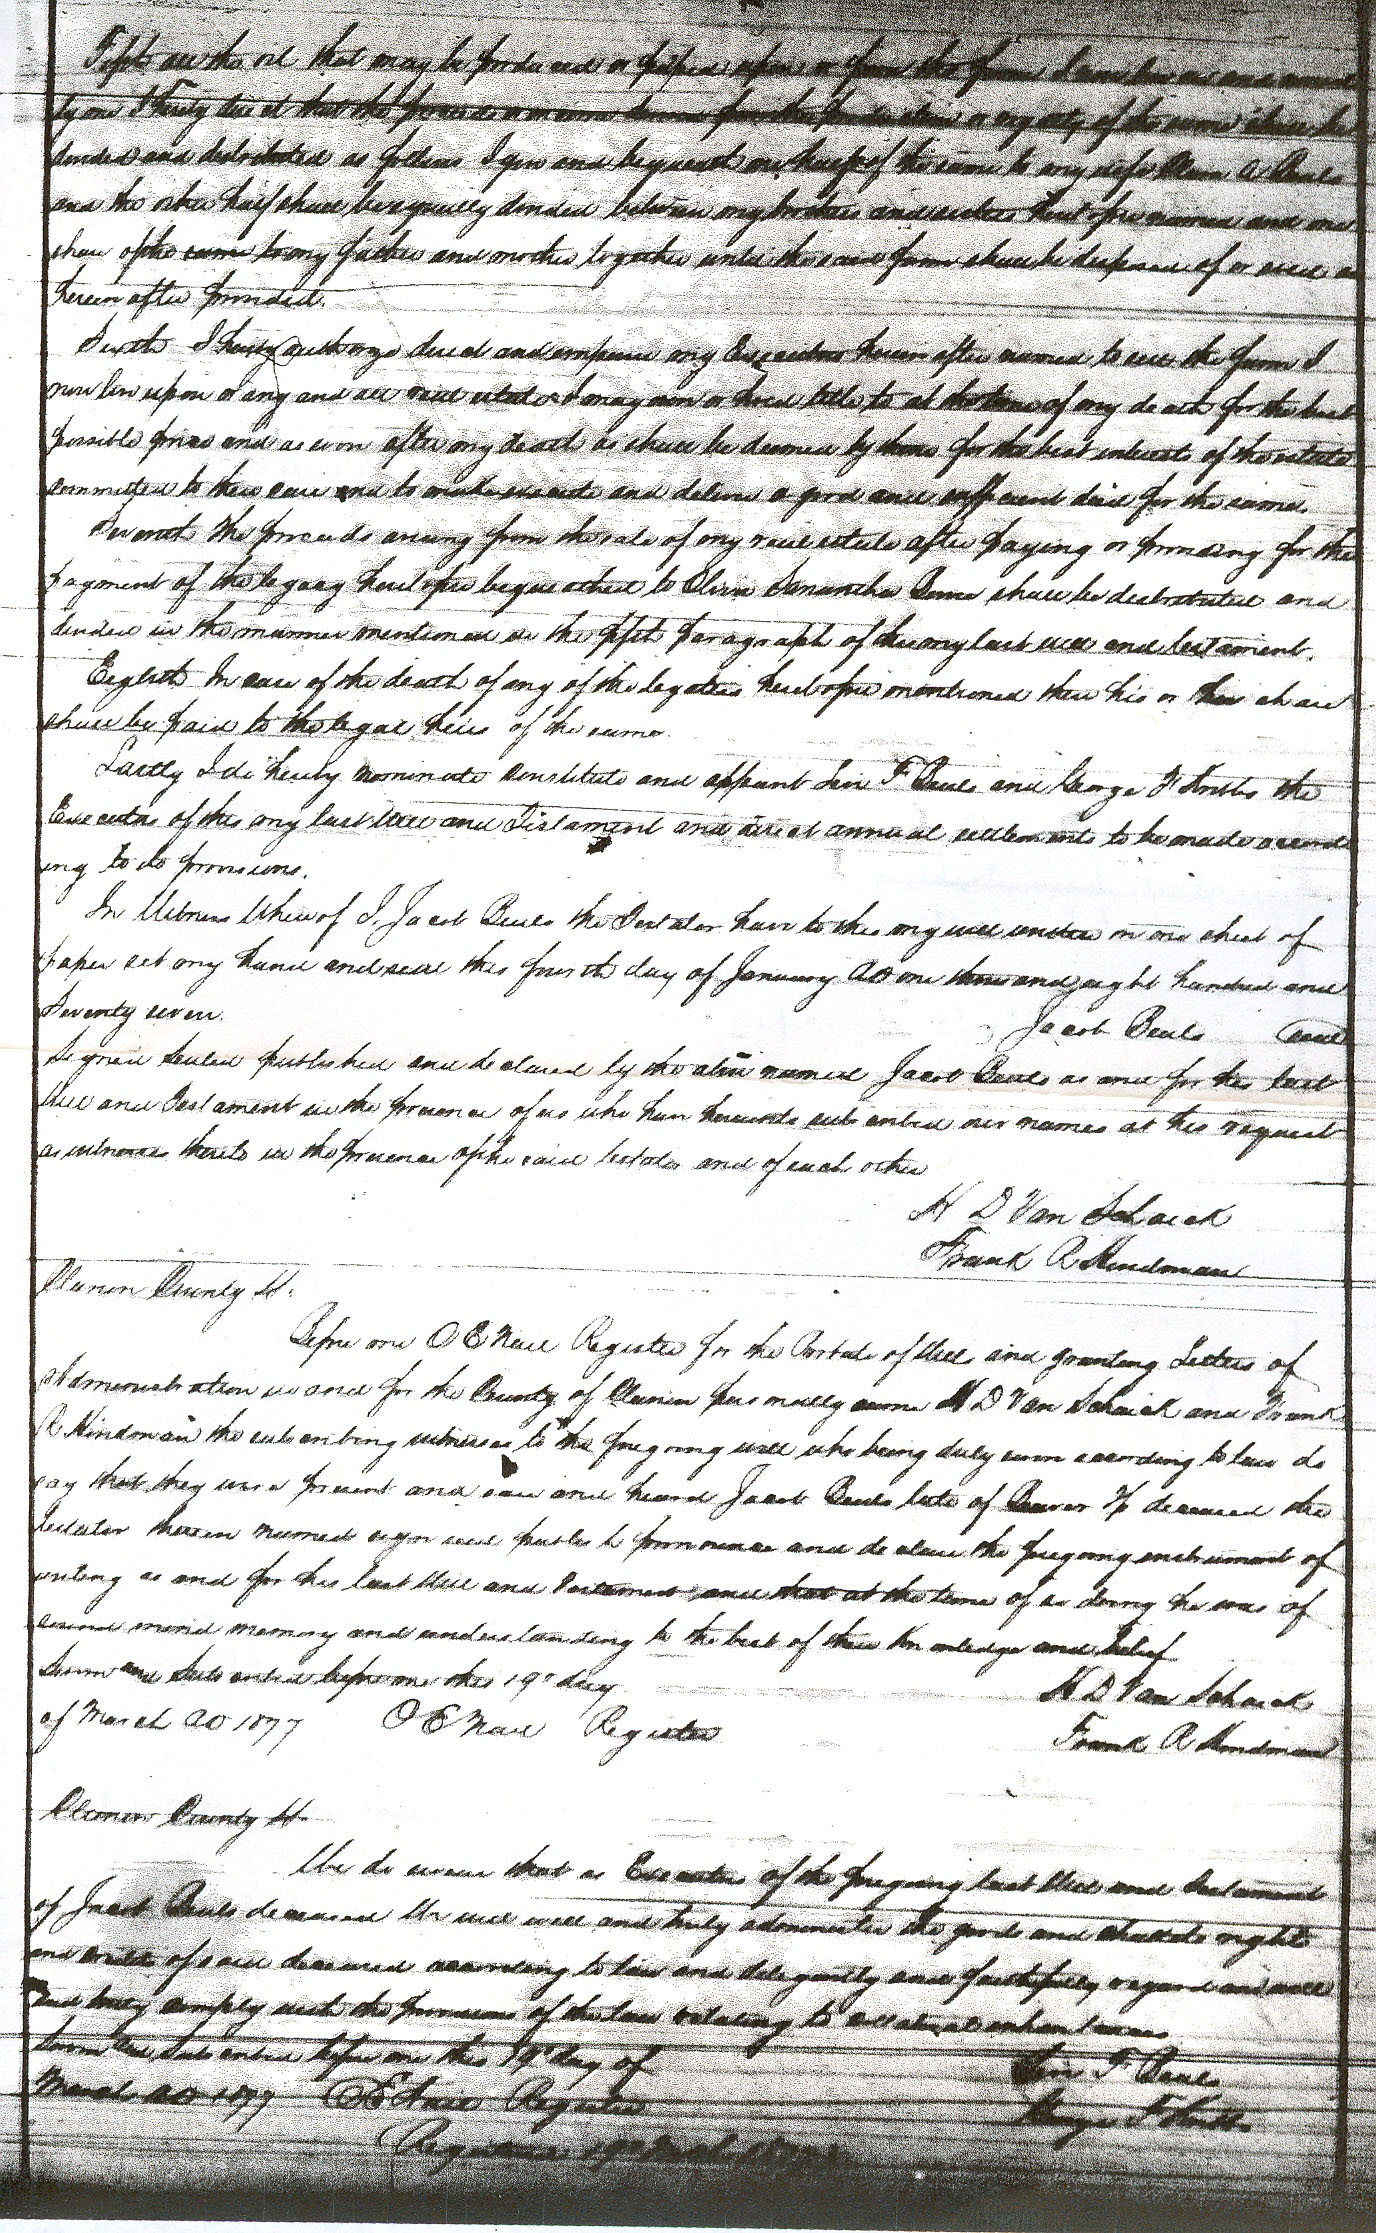 Fifth all the oil that may be produced or piped upon or from the farm I now live on and
I hereby direct that the proceeds or income from the or any of the same shall be
divided and distributed as follows I give and bequeath one half of the same to my wife A Beals
and the other half shall be equally divided between my brothers and sisters heretofore named and one
share of the same to my father and mother together until the said farm shall be disposed of or sold as
herein after provided.
Sixth I hereby authorize direct and empower my Executors herein after named to sell the farm I
now live upon or any and all real estate I may own or have title to at the time of my death for the best
possible price and as soon after my death as shall be deemed by them for the best interests of the estate
committed to their care and to make execute and deliver a good and sufficient deed for the same.
Seventh The proceeds arising from the sale of my real estate after paying or providing for the
payment of the legacy heretofore bequeathed to Samantha shall be distributed and
divided in the manner mentioned in the fifth paragraph of this my last will and testament.
Eighth In case of the death of any of the legatees heretofore mentioned then his or their share
shall be paid to the legal heirs of the same.
Lastly I do hereby nominate constitute and appoint Levi F Beals and George F Kribbs the
Executors of this my last Will and Testament and direct annual settlements to be made accord
ing to its provisions.
In Witness Whereof I, Jacob Beals the Testator have to this my will written on one sheet of
paper set my hand and seal this fourth day of January AD one thousand eight hundred and
Seventy seven.
Jacob Beals seal
Signed sealed published and declared by the above named Jacob Beals as and for his last
Will and Testament in the presence of us who have hereunto subscribed our names at his request
as witnesses thereto in the presence of the said testator and of each other
H D Van Schaick
Frank R Hindman
Clarion County SS.
Before me O E Nail Register for the Probate of Wills and granting Letters of
Administration in and for the County of Clarion personally came H D Van Schaick and Frank
R Hindman the subscribing witnesses to the foregoing will who being duly sworn according to law do
say that they were present and saw and heard Jacob Beals late of Beaver Tp deceased the
testator therein named sign seal publish pronounce and declare the foregoing instrument of
writing as and for his last Will and Testament and that at the time of so doing he was of
sound mind memory and understanding to the best of their knowledge and belief
Sworn and Subscribed before me this 19" day
H D Van Schaick
of March AD 1877 O E Nail Register
Frank R Hindman
Clarion County SS
We do swear that as Executors of the foregoing last Will and Testament
of Jacob Beals deceased We will well and truly administer the goods and chattels rights
and credits of said deceased according to law and diligently and faithfully regard and well
and truly comply with the provisions of the law relating to collateral inheritances
Sworn and Subscribed before me this 19" day of
Levi F Beals
March AD 1877 O E Nail Register
George F Kribbs
Registered 19" March 1877